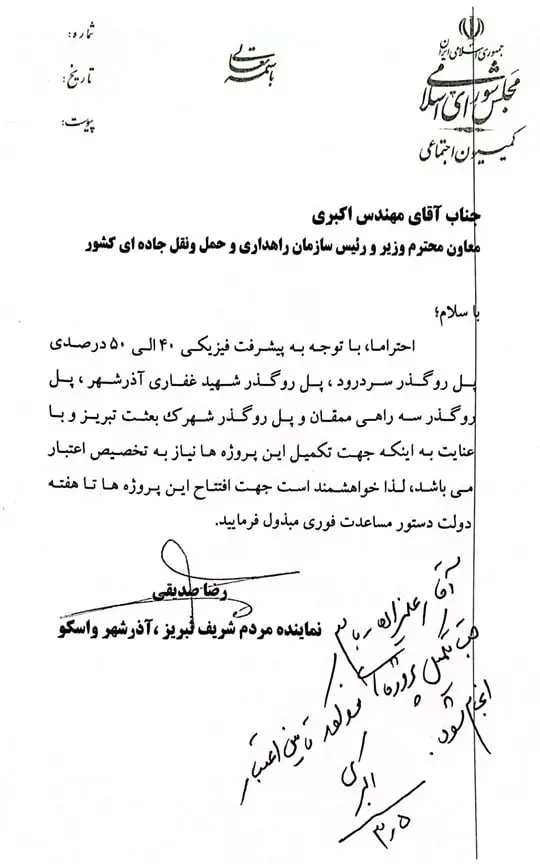 باسمه تعالی
جمهوری اسلامی ایران
مجلس شورای اسلامی
کمیسیون اجتماعی
شماره:
تاریخ:
پیوست:
جناب آقای مهندس اکبری
معاون محترم وزیر و رئیس سازمان راهداری و حمل ونقل جاده ای کشور
با سلام؛
احتراما، با توجه به پیشرفت فیزیکی ۴۰ الی ۵۰ درصدی
پل روگذر سردرود، پل روگذر شهید غفاری آذرشهر، پل
روگذر سه راهی ممقان و پل روگذر شهرک بعثت تبریز و با
عنایت به اینکه جهت تکمیل این پروژه ها نیاز به تخصیص اعتبار
می باشد، لذا خواهشمند است جهت افتتاح این پروژه ها تا هفته
دولت دستور مساعدت فوری مبذول فرمایید.
رضا صدیقی
نماینده مردم شریف تبریز ،آذرشهر واسکو
آقای
جهت تکمیل پروژه ها
تامین اعتبار
انجام شود.
اکبری
۳٫۵